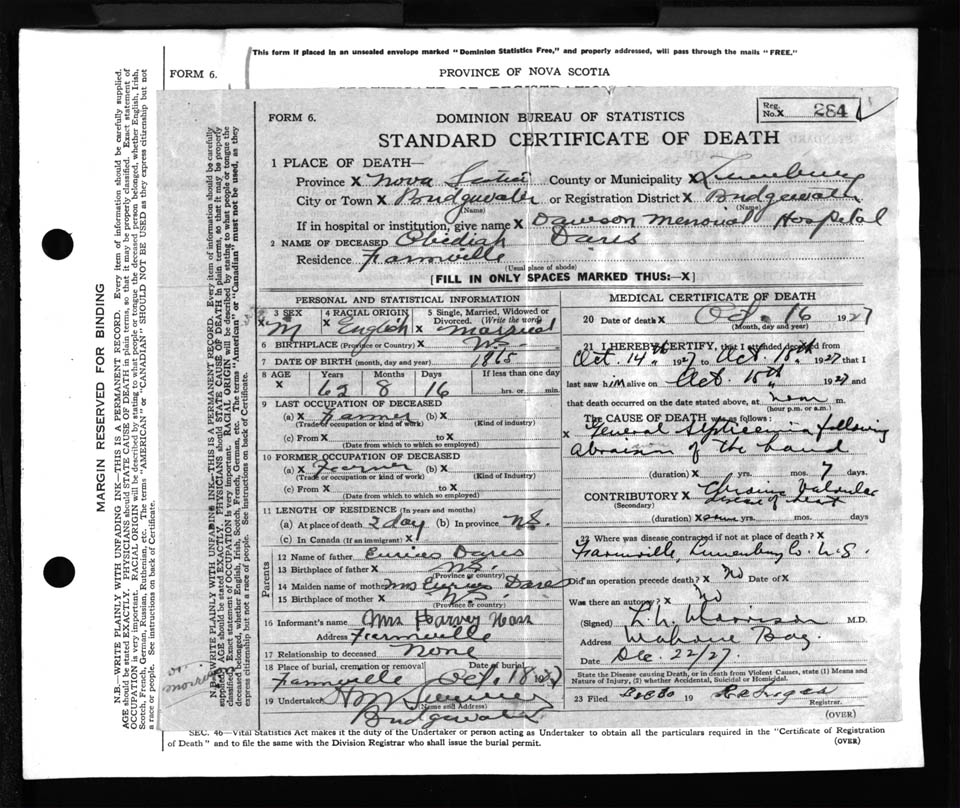 This form if placed in an unsealed envelope marked "Dominion Statistics Free," and properly addressed, will pass through the mails "FREE."
FORM 6.
PROVINCE OF NOVA SCOTIA
FORM 6.
DOMINION BUREAU OF STATISTICS
Reg. No.X 284
STANDARD CERTIFICATE OF DEATH
1 PLACE OF DEATH—
Province X Nova Scotia County or Municipality X Lunenburg
City or Town X Bridgewater or Registration District X Bridgewater
(Name) (Name)
If in hospital or institution, give name X Dawson Memorial Hospital
2 NAME OF DECEASED Obediah Dares
Residence Farmville
(Usual place of abode)
[FILL IN ONLY SPACES MARKED THUS:—X]
PERSONAL AND STATISTICAL INFORMATION
3 SEX 4 RACIAL ORIGIN 5 Single, Married, Widowed or Divorced. (Write the word)
X M X English X married
6 BIRTHPLACE (Province or Country) X N.S.
7 DATE OF BIRTH (month, day and year) 1865
8 AGE Years Months Days If less than one day
X 62 8 16 hrs. or min.
9 LAST OCCUPATION OF DECEASED
(a) X Farmer (b) X
(Trade or occupation or kind of work) (Kind of industry)
(c) From X to X
(Date from which to which so employed)
10 FORMER OCCUPATION OF DECEASED
(a) X Farmer (b) X
(Trade or occupation or kind of work) (Kind of Industry)
(c) From X to X
(Date from which to which so employed)
11 LENGTH OF RESIDENCE (In years and months)
(a) At place of death 2 day (b) In province N.S.
(c) In Canada (If an immigrant) X
Parents
12 Name of father Dares
13 Birthplace of father X N.S.
(Province or country)
14 Maiden name of mother Mrs Dares
15 Birthplace of mother X N.S.
(Province or country)
16 Informant's name Mrs Harvey
Address Farmville
17 Relationship to deceased None
18 Place of burial, cremation or removal Date of burial
Farmville Oct. 18 1927
19 Undertaker
(Name and Address)
Bridgewater
MEDICAL CERTIFICATE OF DEATH
20 Date of death X Oct. 16 1927
(Month, day and year)
21 I HEREBY CERTIFY, that I attended deceased from
Oct. 14th 1927 to Oct. 15th 1927 that I
last saw him alive on Oct. 15th 1927 and
that death occurred on the date stated above, at m.
(hour p.m. or a.m.)
The CAUSE OF DEATH was as follows:
X General Septicemia following
abrasion of the hand
(duration) X yrs. mos. 7 days.
CONTRIBUTORY X Chronic Valvular
(Secondary) disease of heart
(duration) X yrs. mos. days
22 Where was disease contracted if not at place of death? X
Farmville, Lunenburg Co. N.S.
Did an operation precede death? X No Date of X
Was there an autopsy? X No
(Signed) Morrison M.D.
Address Mahone Bay
Date Dec. 22/27.
State the Disease causing Death, or in death from Violent Causes, state (1) Means and Nature of Injury, (2) whether Accidental, Suicidal or Homicidal.
23 Filed 19
Registrar.
(OVER)
SEC. 46—Vital Statistics Act makes it the duty of the Undertaker or person acting as Undertaker to obtain all the particulars required in the "Certificate of Registration
of Death" and to file the same with the Division Registrar who shall issue the burial permit.
(OVER)
MARGIN RESERVED FOR BINDING
N.B.—WRITE PLAINLY WITH UNFADING INK—THIS IS A PERMANENT RECORD. Every item of information should be carefully supplied.
AGE should be stated EXACTLY. PHYSICIANS should STATE CAUSE OF DEATH in plain terms, so that it may be properly classified. Exact statement of
OCCUPATION is very important. RACIAL ORIGIN will be described by stating to what people or tongue the deceased person belonged, whether English, Irish,
Scotch, French, German, Russian, Ruthenian, etc. The terms "AMERICAN" or "CANADIAN" SHOULD NOT BE USED as they express citizenship but not
a race or people. See instructions on back of Certificate.
N.B.—WRITE PLAINLY WITH UNFADING INK—THIS IS A PERMANENT RECORD. Every item of information should be carefully
supplied. AGE should be stated EXACTLY. PHYSICIANS should STATE CAUSE OF DEATH in plain terms, so that it may be properly
classified. Exact statement of OCCUPATION is very important. RACIAL ORIGIN will be described by stating to what people or tongue the
deceased belonged, whether English, Irish, Scotch, French, German, etc. The terms "American" or "Canadian" must not be used, as they
express citizenship but not a race of people. See instructions on back of Certificate.